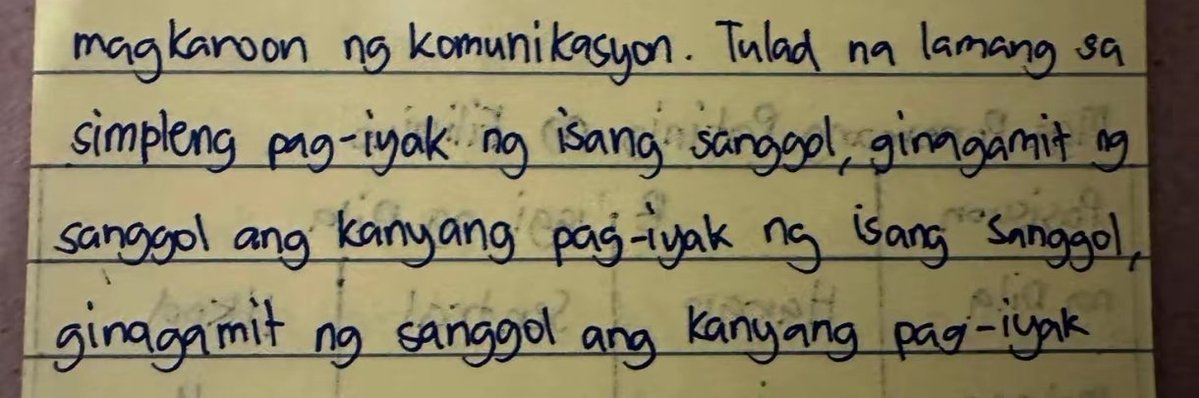 magkaroon ng komunikasyon. Tulad na lamang sa
simpleng pag-iyak ng isang sanggol, ginagamit ng
sanggol ang kanyang pag-iyak ng isang sanggol,
ginagamit ng sanggol ang kanyang pag-iyak